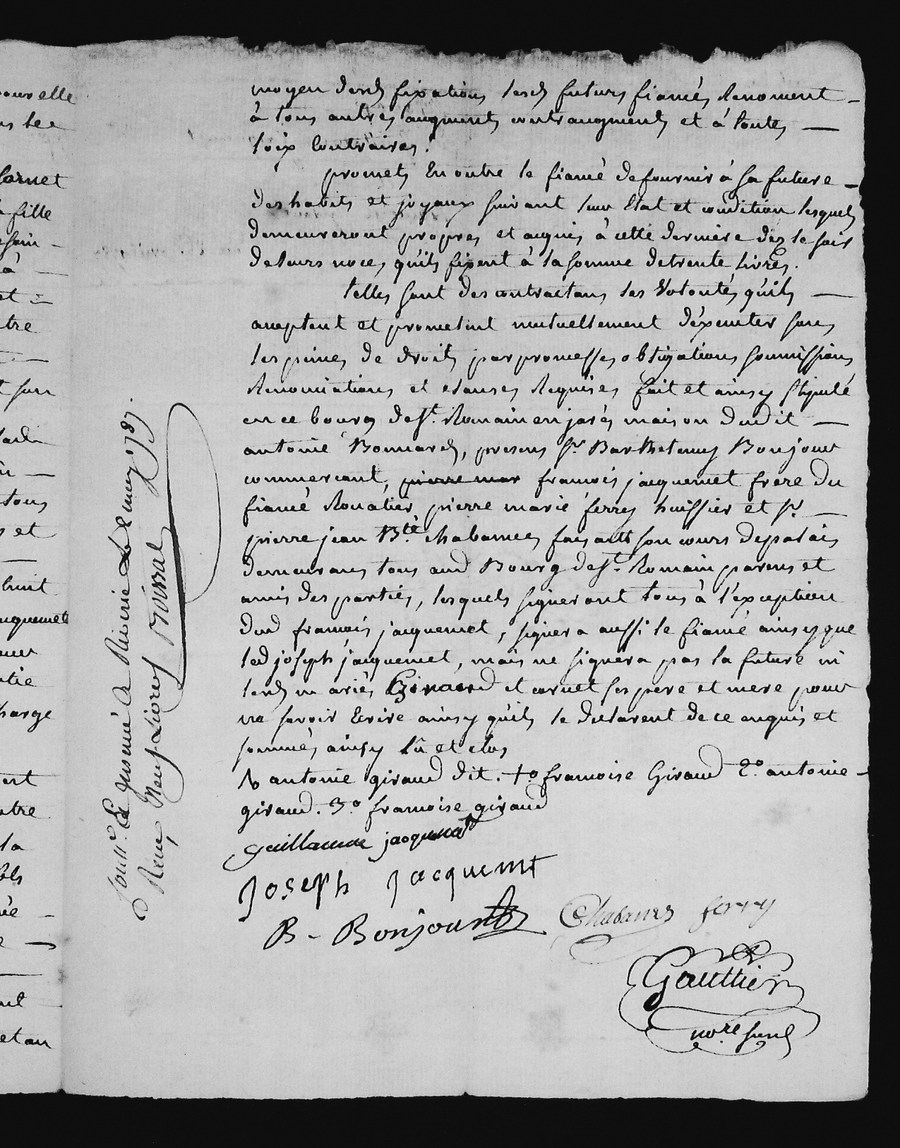 ouvelle
ns lee
Cornet
fille
à
et
tre
tous
et
huit
harge
tre
la
et au
moyen desd fixations lesd futurs fiancés Renoncent
à tous autres augments contraugments et à toutes
loix Contraires.
promet En outre le fiancé de fournir à sa future
des habits et joyaux suivant leur Etat et condition lesquels
demeureront propres et acquis à cette dernière dès le soir
de leurs noces, qu'ils fixent à la somme de trente Livres.
telles sont des contractans les Volontés qu'ils
acceptent et promettent mutuellement d'éxecuter sous
les peines de droits par promesses obligations soumissions
Renonciations et clauses Requises fait et ainsy stipulé
en ce bourg de St. Romain en jarés maison dudit
antoine Bonnard, presens Sr. Barthelemy Bonjour
commercant, francois jacquemet frere du
fiancé Rouatier pierre marie ferry huissier et Sr.
pierre jean Bte. chabanes faisant son cours de palais
demeurans tous aud Bourg de St. Romain parens et
amis des parties, lesquels signeront tous à l'exception
dud francois jacquemet, signera aussi le fiancé ainsy que
led joseph jacquemet, mais ne signera pas la future ni
lesd mariés Giraud et cornet ses pere et mere pour
ne savoir Ecrire ainsy qu'ils le declarent de ce enquis et
sommés ainsy lû et clos
antoine giraud dit. 1o francoise Giraud 2o antoine
giraud. 3o francoise giraud
Guillaume jacquemet
Joseph Jacquemt
B- Bonjour
Chabanes ferry
Gauttier
nore. sused
Contle. Et Insinué A Riverie Le 2 may 1787.
Reçu Neuf Livres